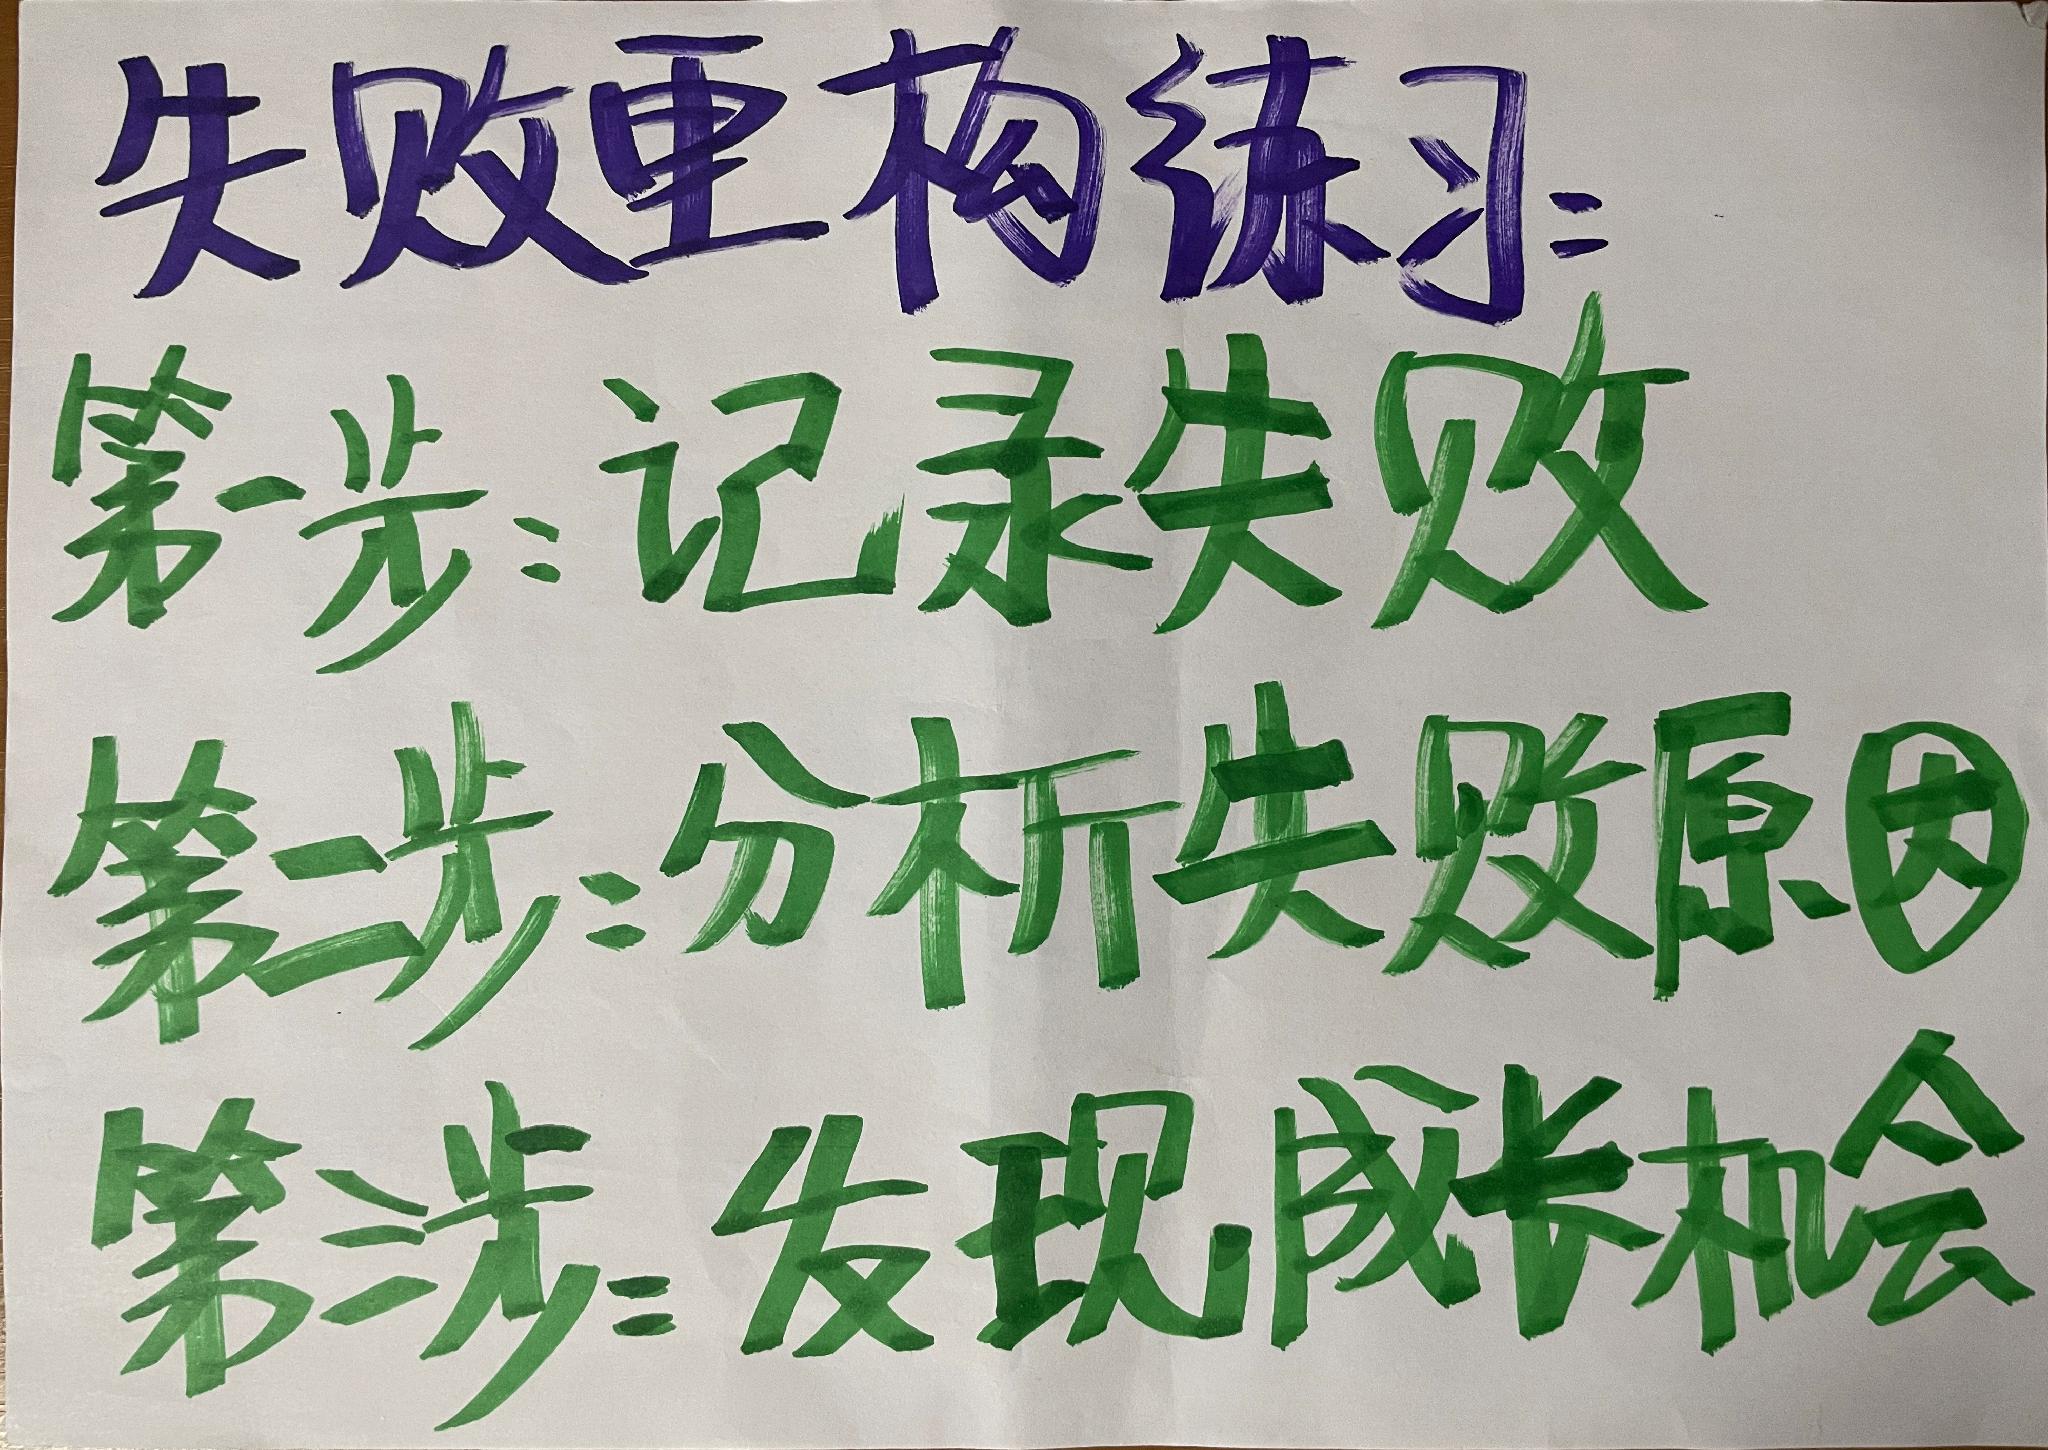 失败重构练习：
第一步：记录失败
第二步：分析失败原因
第三步：发现成长机会